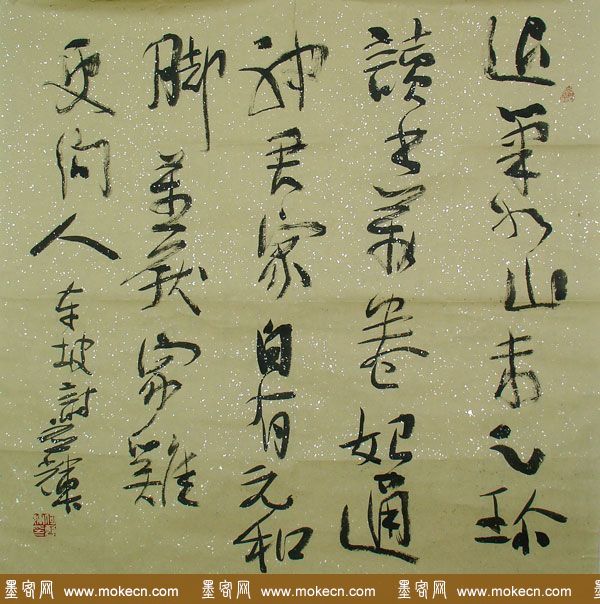 退筆如山未足珍
讀書萬卷始通
神君家自有元和
脚莫厭家雞
更問人
东坡詩
墨客网 www.mokecn.com 墨客网 www.mokecn.com 墨客网 www.mokecn.com